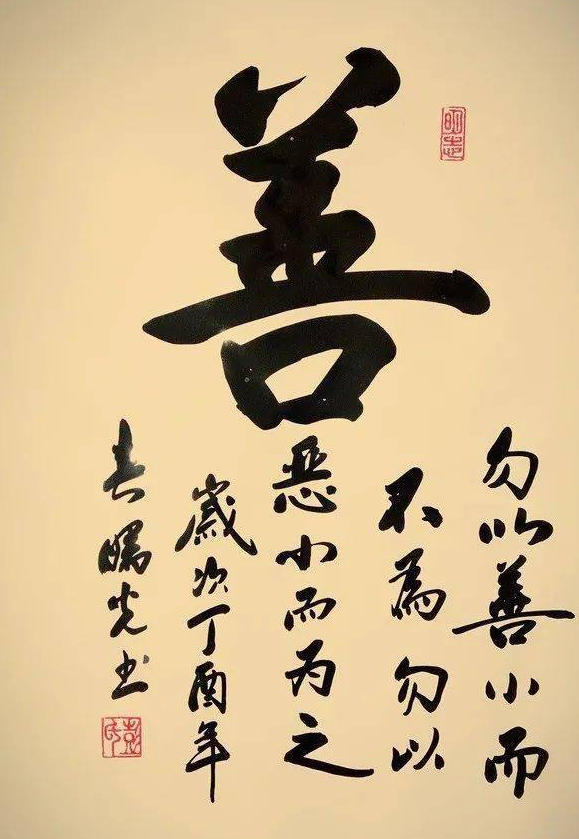 善
勿以善小而
不為勿以
惡小而为之
歲次丁酉年
春曙光书